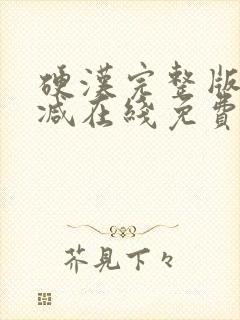 硬漢完整版
減在綫免費
芥見下々